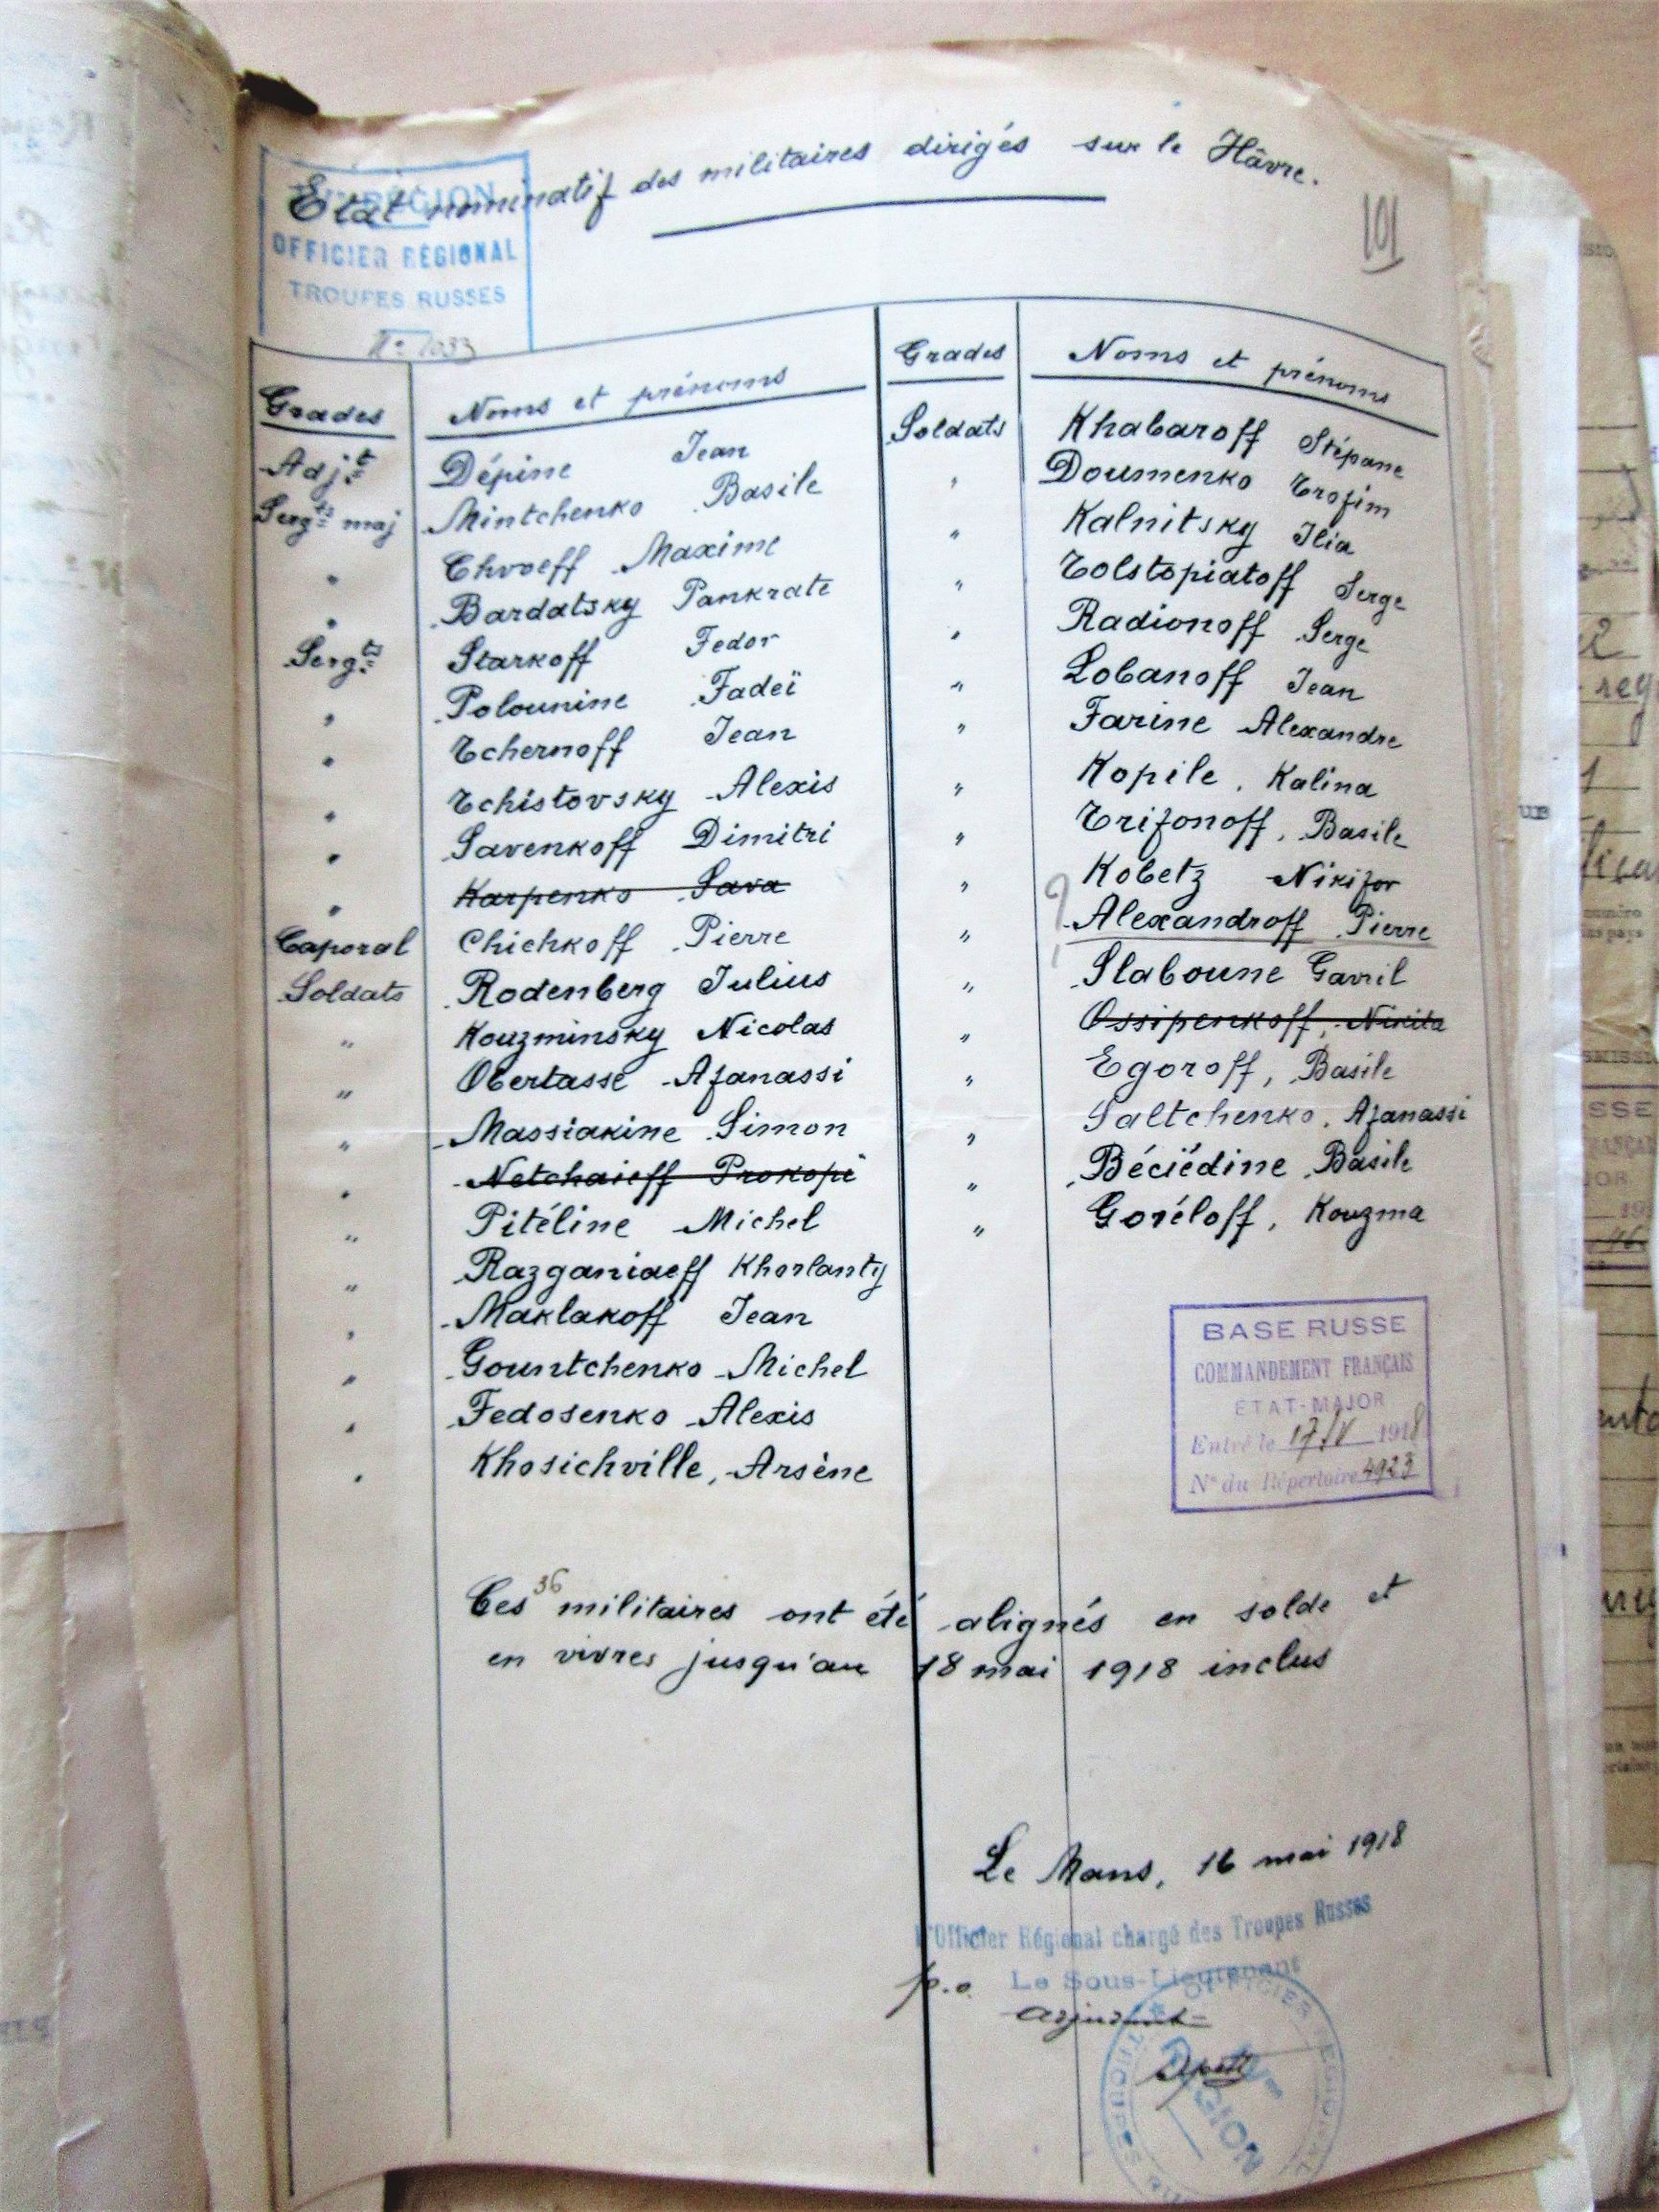 Etat nominatif des militaires dirigés sur le Hâvre.
101
RÉGION
OFFICIER RÉGIONAL
TROUPES RUSSES
N° 1033
Grades Noms et prénoms
Adjt Dépine Jean
Sergts maj Mintchenko Basile
" Chvoeff Maxime
" Bardatsky Pankrate
Sergts Starkoff Fedor
" Polounine Fadeï
" Tchernoff Jean
" Tchistovsky Alexis
" Savenkoff Dimitri
" Karpenko Sava
Caporal Chichkoff Pierre
Soldats Rodenberg Julius
" Kouzminsky Nicolas
" Obertasse Afanassi
" Massiakine Simon
" Netchaieff Prokopi
" Pitéline Michel
" Razganiaeff Khorlanty
" Maklakoff Jean
" Gountchenko Michel
" Fedosenko Alexis
" Khosichville, Arsène
Grades Noms et prénoms
Soldats Khabaroff Stépane
" Doumenko Trofim
" Kalnitsky Ilia
" Tolstopiatoff Serge
" Radionoff Serge
" Lobanoff Jean
" Farine Alexandre
" Kopile, Kalina
" Trifonoff, Basile
" Kobetz Nikifor
" Alexandroff Pierre
" Slaboune Gavril
" Ossipenkoff, Nikita
" Egoroff, Basile
" Saltchenko, Afanassi
" Béciédine Basile
" Goréloff, Kouzma
BASE RUSSE
COMMANDEMENT FRANÇAIS
ÉTAT-MAJOR
Entré le 17/V 1918
N° du Répertoire 4923
Ces 36 militaires ont été alignés en solde et
en vivres jusqu'au 18 mai 1918 inclus
Le Mans, 16 mai 1918
L'Officier Régional chargé des Troupes Russes
p.o. Le Sous-Lieutenant
OFFICIER RÉGIONAL
RÉGION